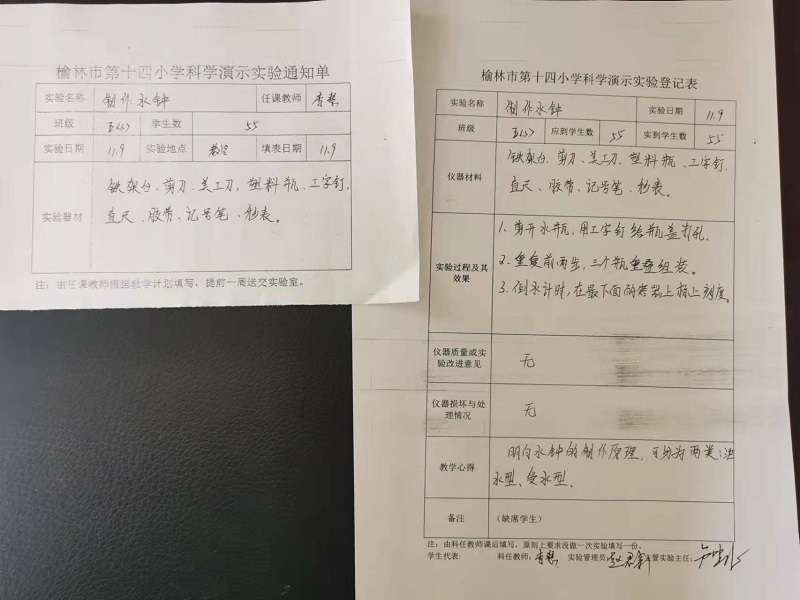 榆林市第十四小学科学演示实验通知单
实验名称 制作水钟 任课教师
班级 五(5) 学生数 55
实验日期 11.9 实验地点 教室 填表日期 11.9
实验器材 铁架台、剪刀、美工刀、塑料瓶、工字钉、
直尺、胶带、记号笔、秒表。
注:由任课教师根据教学计划填写,提前一周送交实验室。
榆林市第十四小学科学演示实验登记表
实验名称 制作水钟 实验日期 11.9
班级 五(5) 应到学生数 55 实到学生数 55
仪器材料 铁架台、剪刀、美工刀、塑料瓶、工字钉、
直尺、胶带、记号笔、秒表。
实验过程及其
效果
1、剪开水瓶,用工字钉给瓶盖打孔.
2、重复前两步,三个瓶重叠组装。
3、倒水计时,在最下面的容器上标上刻度。
仪器质量或实
验改进意见 无
仪器损坏与处
理情况 无
教学心得 明白水钟的制作原理,可分为两类:泄
水型、受水型.
备注 (缺席学生)
注:由科任教师课后填写,原则上要求没做一次实验填写一份。
学生代表: 科任教师: 实验管理员: 主管实验主任: